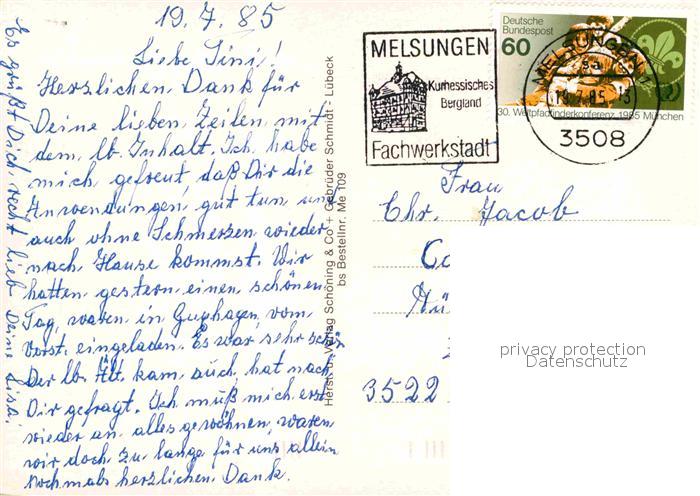 19.7.85
Liebe Tini!
Herzlichen Dank für
Deine lieben Zeilen mit
dem lb. Inhalt. Ich habe
mich gefreut daß Dir die
Anwendungen gut tun und
auch ohne Schmerzen wieder
nach Hause kommst. Wir
hatten gestern einen schönen
Tag, waren in Guxhagen, vom
Vorst. eingeladen. Es war sehr schön
Der lb. Ält. kam auch, hat nach
Dir gefragt. Ich muß mich erst
wieder an alles gewöhnen, waren
wir doch zu lange für uns allein
Nochmals herzlichen Dank.
Es grüßt Dich recht lieb Deine Lisa.
Herst. u. Verlag Schöning & Co + Gebrüder Schmidt - Lübeck
bs Bestellnr. Me 109
MELSUNGEN
Kurhessisches
Bergland
Fachwerkstadt
Deutsche
Bundespost
60
30. Weltpfadfinderkonferenz 1985 München
MELSUNGEN 1
sa
19.7.85.13
3508
Frau
Chr. Jacob
3522
privacy protection
Datenschutz